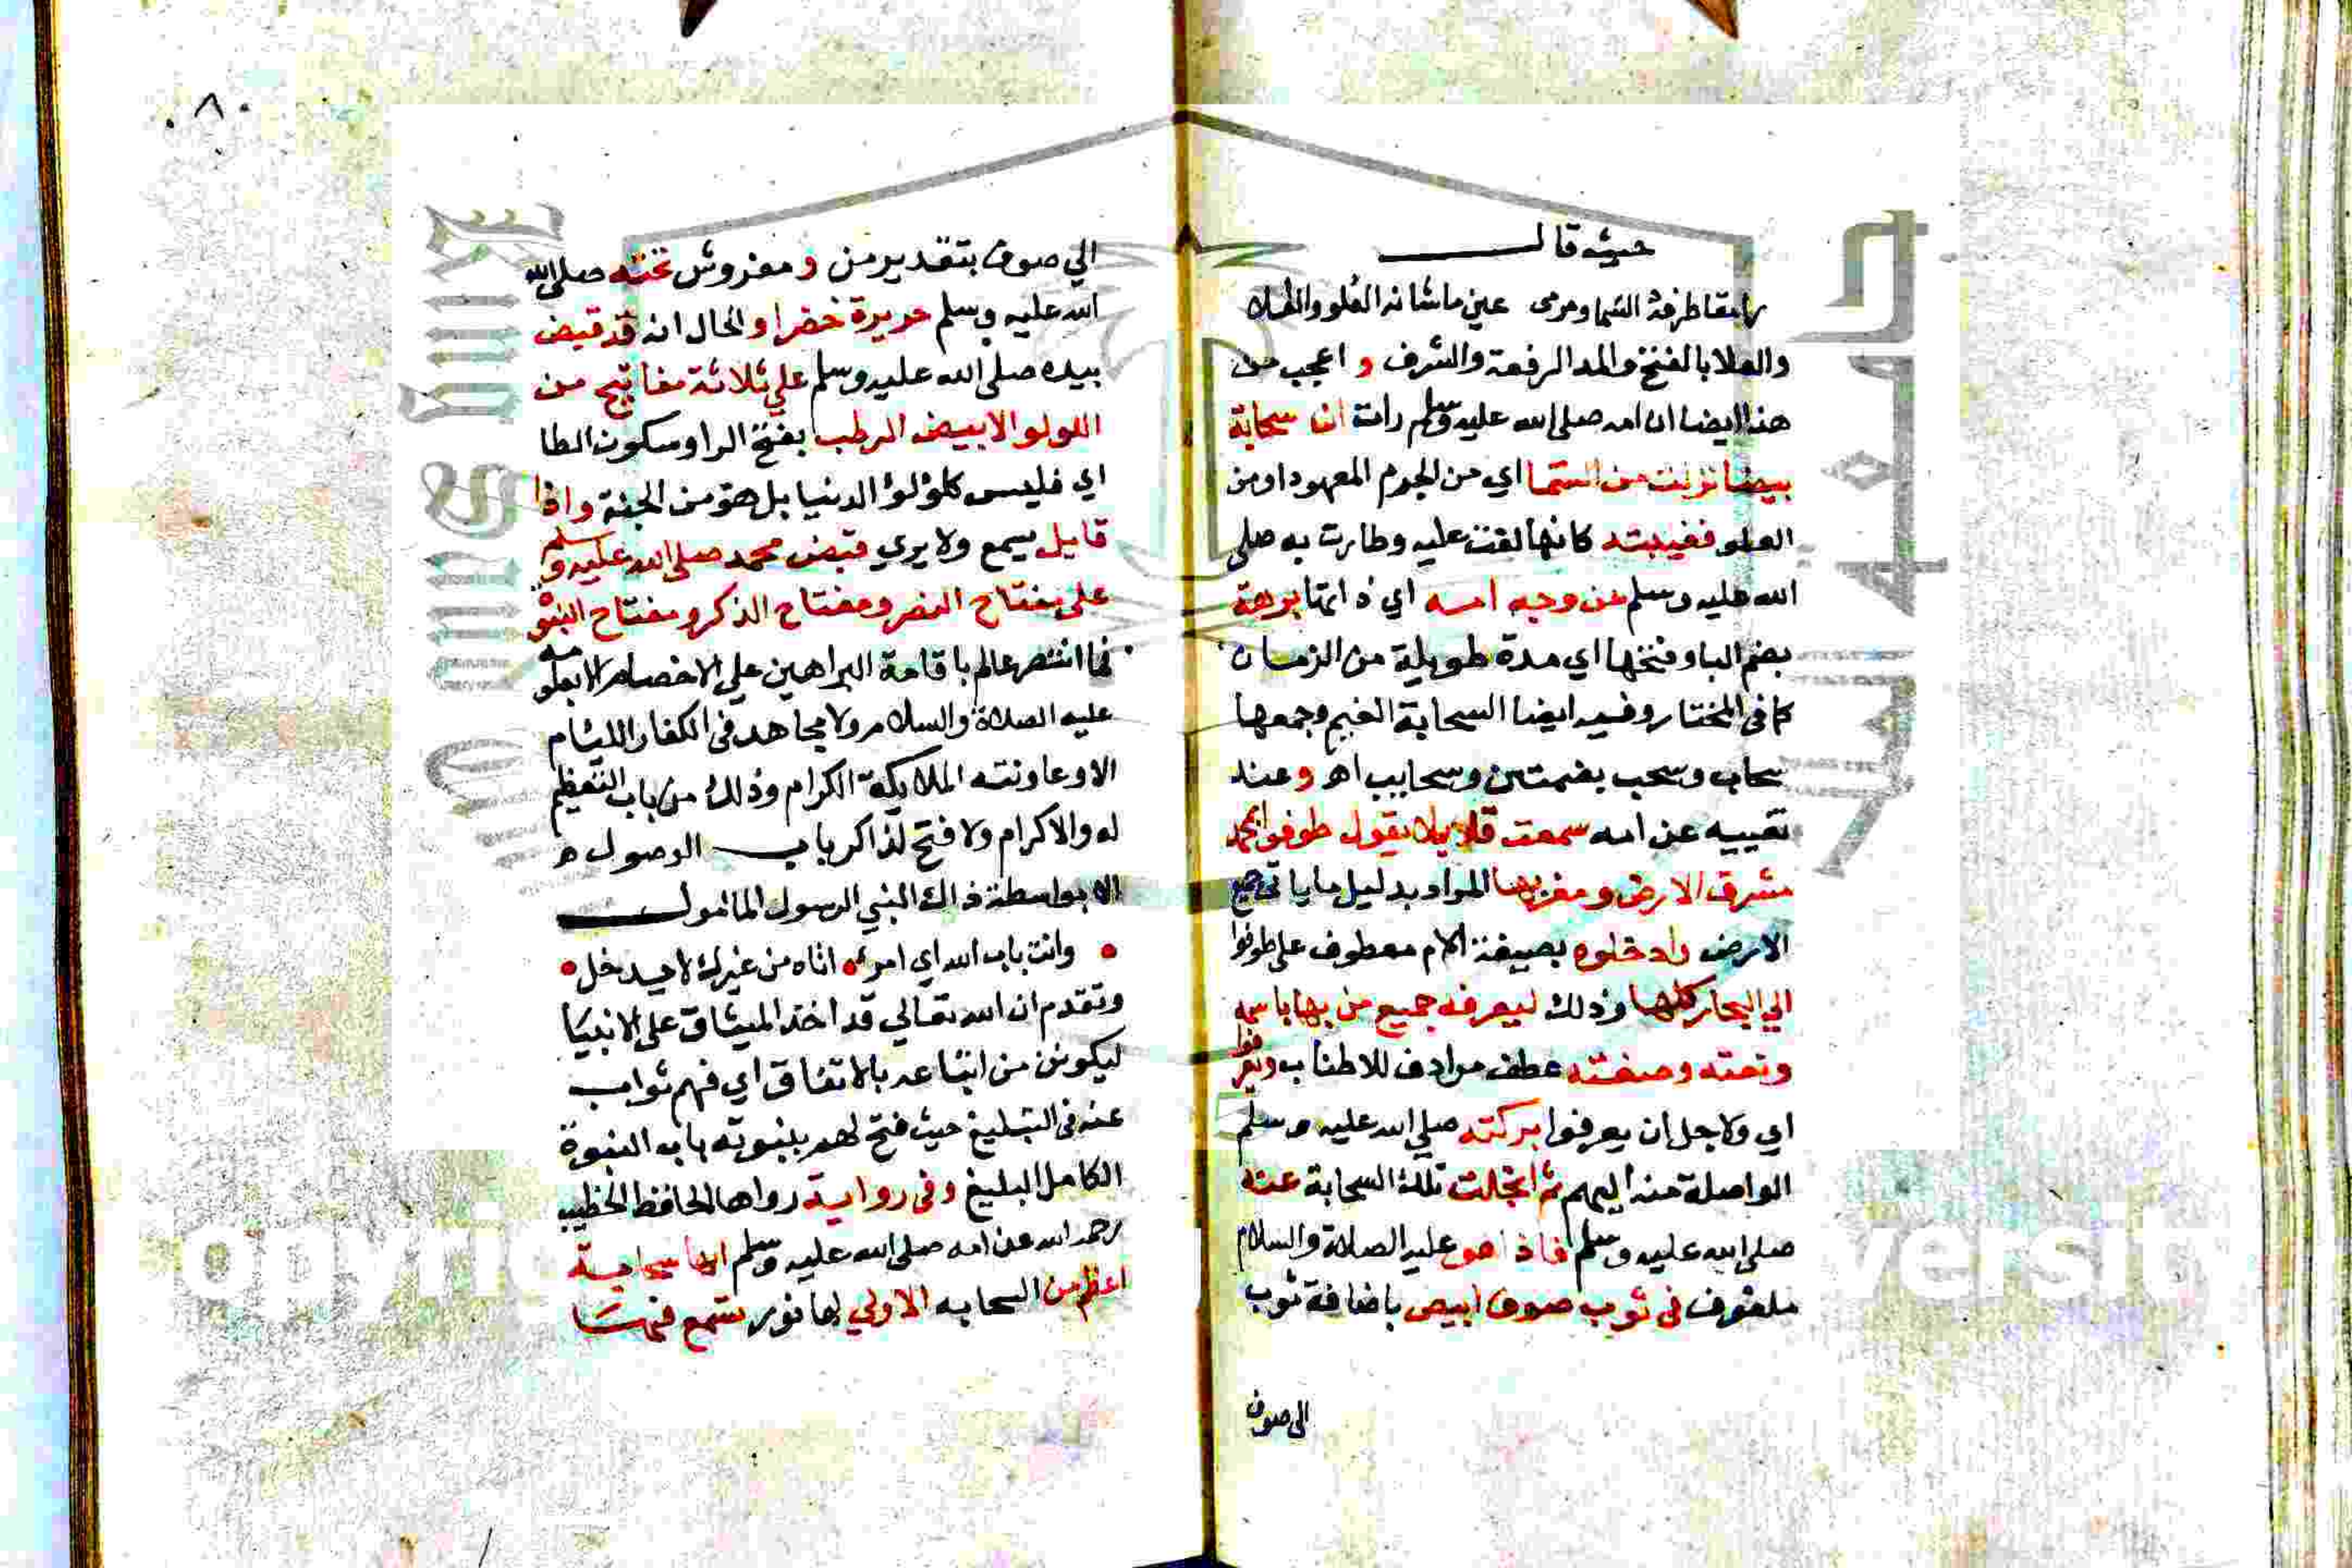 حيث قال
رامقا طرفه السما ومرمى عين ما شانه العلو والعلاء
والعلا بالفتح والمد الرفعة والشرف و اعجب من
هذا ايضا ان امه صلى الله عليه وسلم رات ان سحابة
بيضا نزلت من السما اي من الجرم المعهود او من
العلو فغيبته كانها لفت عليه وطارت به صلى
الله عليه وسلم عن وجه امه اي ذاتها برهة
بضم البا وفتحها اي مدة طويلة من الزمان
كما في المختار وفيه ايضا السحابة الغيم وجمعها
سحاب وسحب بضمتين وسحايب اهـ وعند
تغييبه عن امه سمعت قايلا يقول طوفوا بمحمد
مشرق الارض ومغربها المراد بدليل ما ياتي جميع
الارض وادخلوه بصيغة الامر معطوف على طوفوا
الي البحار كلها وذلك ليعرفه جميع من بها باسمه
ونعته وصفته عطف مرادف للاطناب ويعرفوا
اي ولاجل ان يعرفوا بركته صلي الله عليه وسلم
الواصلة منه اليهم ثم انجلت تلك السحابة عنه
صلى الله عليه وسلم فاذا هو عليه الصلاة والسلام
ملفوف في ثوب صوف ابيض باضافة ثوب
الى صوف
٨٠
الي صوف بتقدير من و مفروش تحته صلى الله
الله عليه وسلم حريرة خضرا والحال انه قد قبض
بيده صلى الله عليه وسلم علي ثلاثة مفاتيح من
اللولو الابيض الرطب بفتح الرا وسكون الطا
اي فليس كلؤلؤ الدنيا بل هو من الجنة واذا
قايل يسمع ولا يري قبض محمد صلى الله عليه وسلم
على مفتاح النصر ومفتاح الذكر ومفتاح النبوة
فما انتصر عالم باقامة البراهين علي الاخصام الا بعلومه
عليه الصلاة والسلام ولا مجاهد في الكفار الليام
الا وعاونته الملايكة الكرام وذلك من باب التعظيم
له والاكرام ولا فتح لذاكر باب الوصول
الا بواسطة ذاك النبي الرسول المامول
وانت باب الله اي امرئ اتاه من غيرك لا يدخل
وتقدم ان الله تعالي قد اخذ الميثاق على الانبيا
ليكونن من اتباعه بالاتفاق اي فهم نواب
عنه في التبليغ حيث فتح لهم بنبوته باب النبوة
الكامل البليغ وفي رواية رواها الحافظ الخطيب
رحمه الله عن امه صلى الله عليه وسلم انها سحابة
اعظم من السحابه الاولي لها نور تسمع فيها